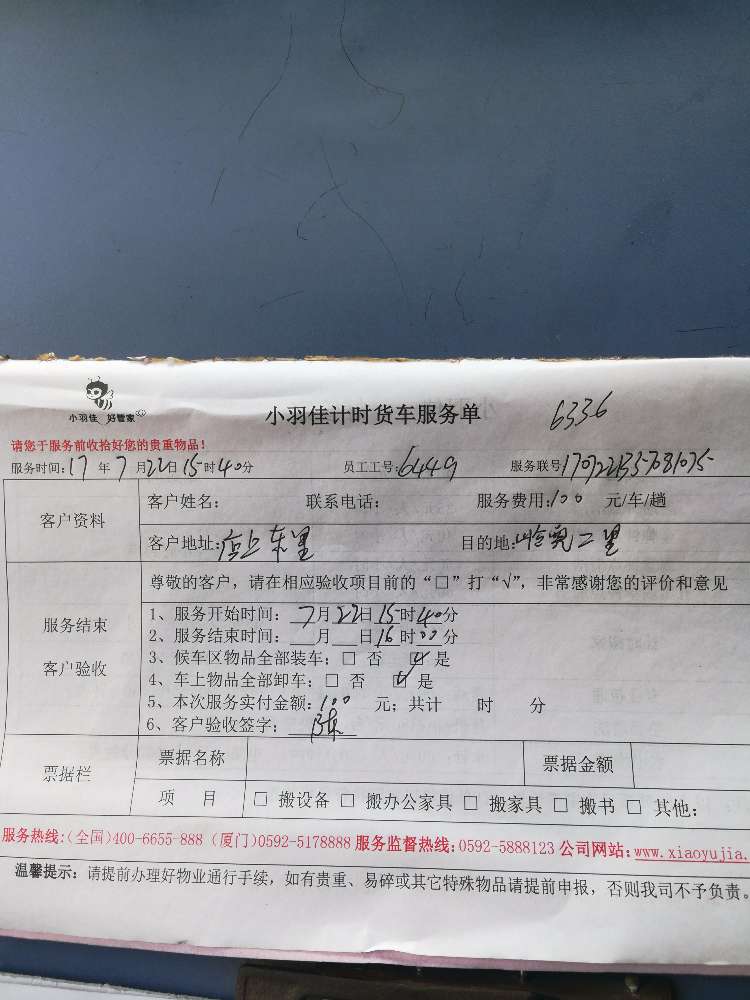 小羽佳 好管家
小羽佳计时货车服务单 6336
请您于服务前收拾好您的贵重物品!
服务时间:17年7月22日15时40分 员工工号:6449 服务联号
客户资料
客户姓名: 联系电话: 服务费用:100 元/车/趟
客户地址:店上东里 目的地:
服务结束
客户验收
尊敬的客户，请在相应验收项目前的“□”打“√”，非常感谢您的评价和意见
1、服务开始时间: 7月22日15时40分
2、服务结束时间: 月 日16时00分
3、候车区物品全部装车: □ 否 ☑ 是
4、车上物品全部卸车: □ 否 ☑ 是
5、本次服务实付金额:100 元; 共计 时 分
6、客户验收签字: 陈
票据栏
票据名称 票据金额
项 目 □ 搬设备 □ 搬办公家具 □ 搬家具 □ 搬书 □ 其他:
服务热线:(全国)400-6655-888 (厦门)0592-5178888 服务监督热线:0592-5888123 公司网站:www.xiaoyujia.
温馨提示: 请提前办理好物业通行手续，如有贵重、易碎或其它特殊物品请提前申报，否则我司不予负责。